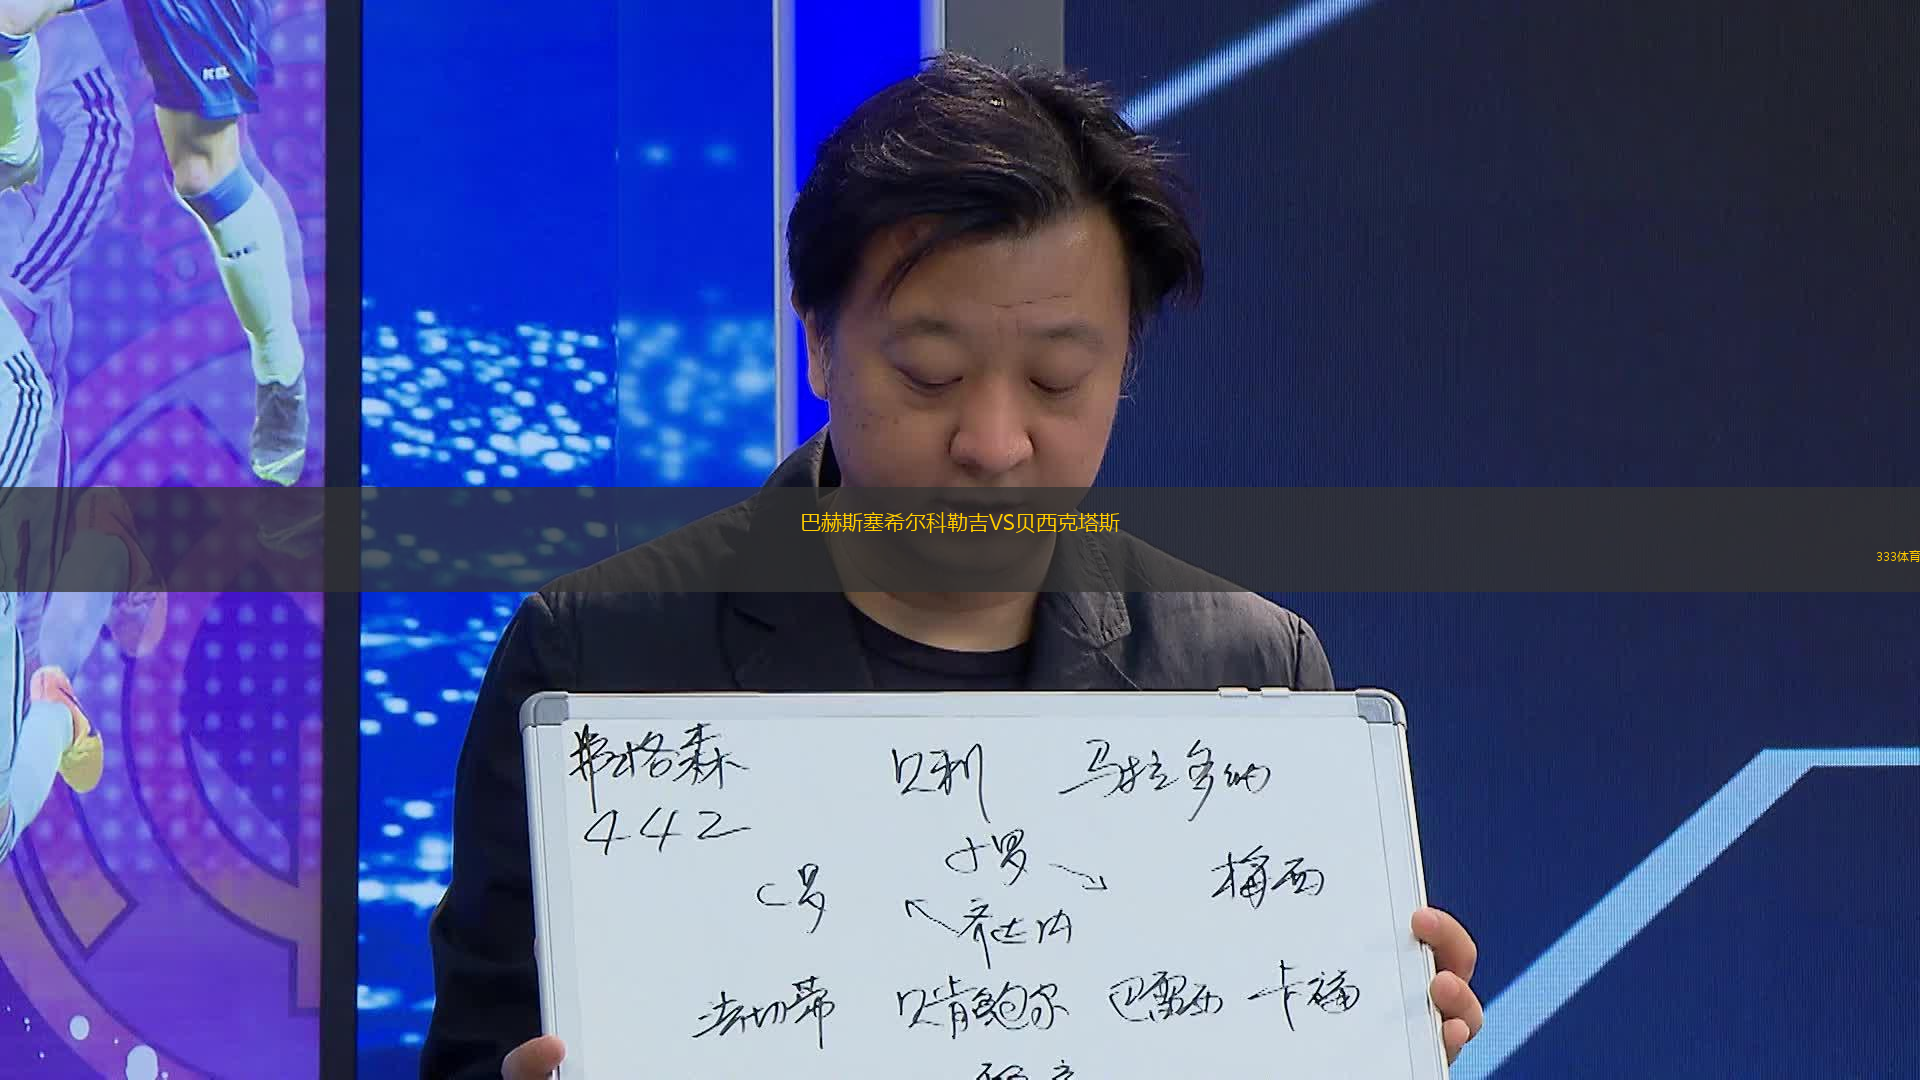 巴赫斯塞希尔科勒吉VS贝西克塔斯
333体育
弗格森 贝利 马拉多纳
442
小罗
C罗 梅西
齐达内
法切蒂 贝肯鲍尔 巴雷西 卡福